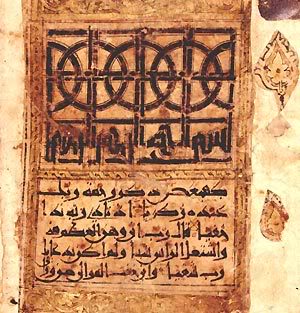 بسم الله الرحمن الرحيم
كهيعص ذكر رحمة ربك
عبده زكريا اذ نادى ربه ندا
خفيا قال رب اني وهن العظم مني
واشتعل الراس شيبا ولم اكن بدعائك
رب شقيا واني خفت الموالي من ورا